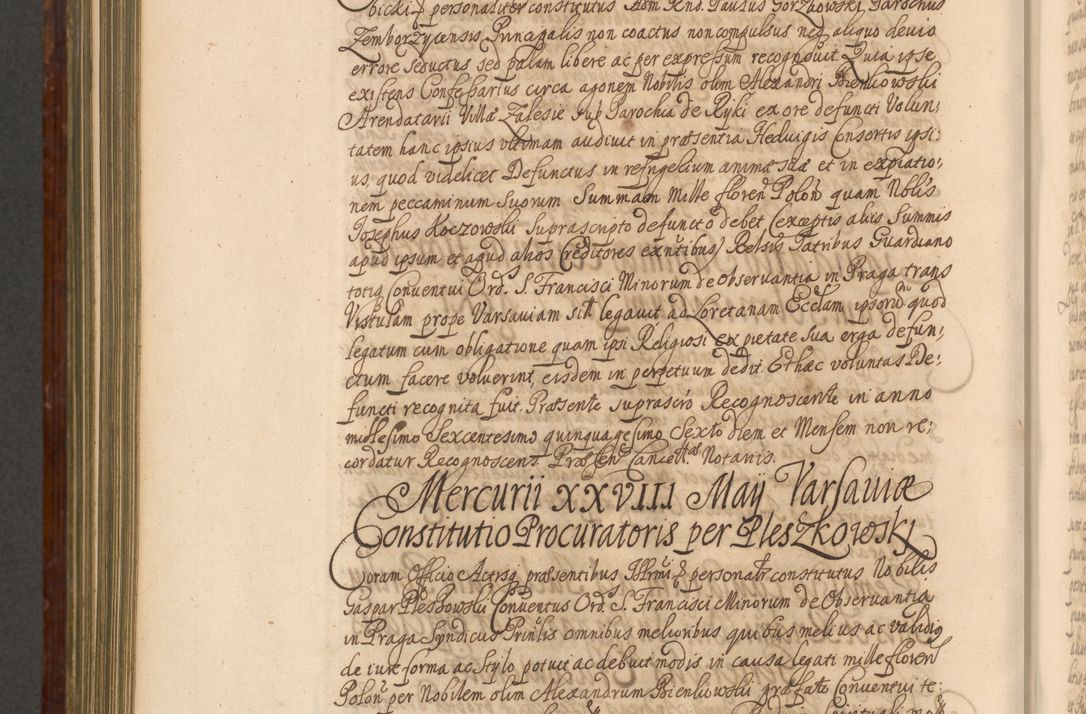 bicki & personaliter constitutus Adm Rnd. Paulus Gorzkowski, Parochus
Zemborzycensis, Principalis non coactus non compulsus neq aliquo devio
errore seductus sed palam libere ac per expressum recognovit. Quia ipse
existens Confessarius circa agonem Nobilis olim Alexandri Bienkowski
Arendatarii Villæ Zalesie sub Parochia de Ryki ex ore defuncti Volun:
tatem hanc ipsius ultimam audivit in præsentia Hedvigis Consortis ipsi:
us quod videlicet Defunctus in refrigerium animæ suæ et in expiatio:
nem peccaminum suorum Summam Mille floren Polon quam Nblis
Josephus Koczowski suprascripto defuncto debet (exceptis aliis Summis
apud ipsum et apud alios Creditores exntibus) Relsis Patribus Guardiano
totiq Conventui Ord. S. Francisci Minorum de Observantia in Praga trans
Vistulam prope Varsaviam sitt legavit ad Loretanam Ecclam ipsorum quod
legatum cum obligatione quam ipsi Religiosi ex pietate sua erga defun:
ctum facere voluerint, eisdem in perpetuum dedit. Et hæc voluntas De:
functi recognita fuit. Præsente suprascro Recognoscente in anno
millesimo Sexcentesimo quinquagesimo Sexto diem et Mensem non re:
cordatur Recognoscens. Præsen Cancell. Notariis.
Mercurii XXVIII Maÿ Varsaviæ
Constitutio Procuratoris per Pleszkowski
Coram Officio Actisq præsentibus Illrmi & personalr constitutus Nobilis
Gaspar Pleszkowski Conventus Ord. S. Francisci Minorum de Observantia
in Praga Syndicus Prinlis omnibus melioribus quibus melius ac validiq
de iure forma ac stylo potuit ac debuit modis in causa legati mille floren
Polon per Nobilem olim Alexandrum Bienkowski præfato Conventui te: